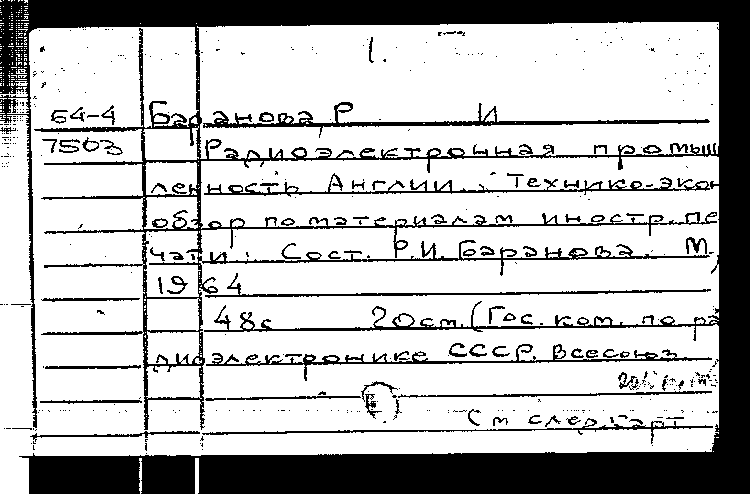 1.
64-4 Баранова, Р И
7503 Радиоэлектронная промыш
ленность Англии. Технико-экон
обзор по материалам иностр. пе
чати. Сост. Р.И. Баранова. М,
1964
48с 20см. (Гос. ком. по ра
диоэлектронике СССР. Всесоюз.
См след. карт